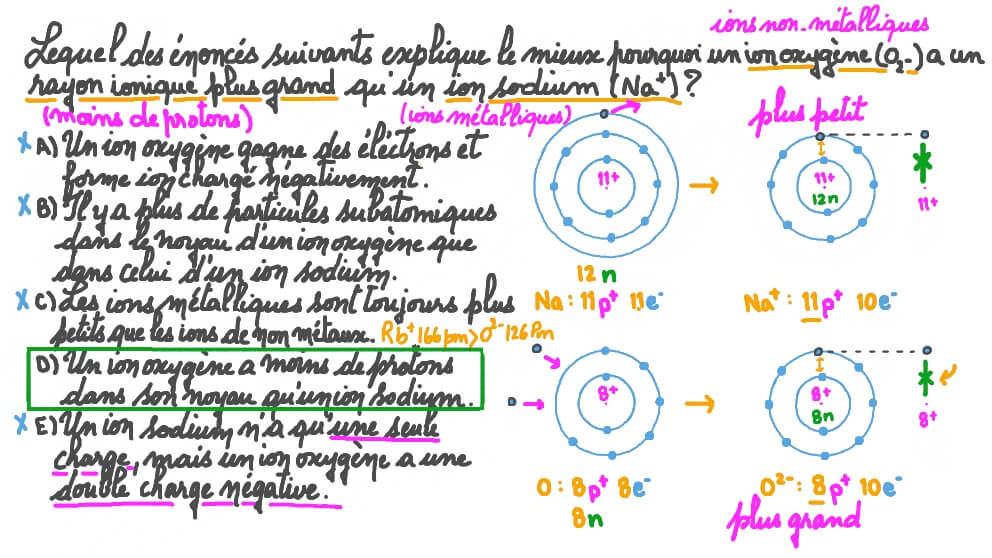 ions non-métalliques
Lequel des énoncés suivants explique le mieux pourquoi un ion oxygène (O₂-) a un
rayon ionique plus grand qu'un ion sodium (Na⁺)?
(moins de protons)
(ions métalliques)
A) Un ion oxygène gagne des électrons et
forme ion chargé négativement.
B) Il y a plus de particules subatomiques
dans le noyau d'un ion oxygène que
dans celui d'un ion sodium.
C) Les ions métalliques sont toujours plus
petits que les ions de non métaux. Rb⁺ 166 pm > O²⁻ 126 Pm
D) Un ion oxygène a moins de protons
dans son noyau qu'un ion sodium.
E) Un ion sodium n'a qu'une seule
charge, mais un ion oxygène a une
double charge négative.
11+
12n
Na : 11p⁺ 11e⁻
plus petit
11+
12n
11+
Na⁺ : 11p⁺ 10e⁻
8+
O : 8p⁺ 8e⁻
8n
8+
8n
8+
O²⁻ : 8p⁺ 10e⁻
plus grand